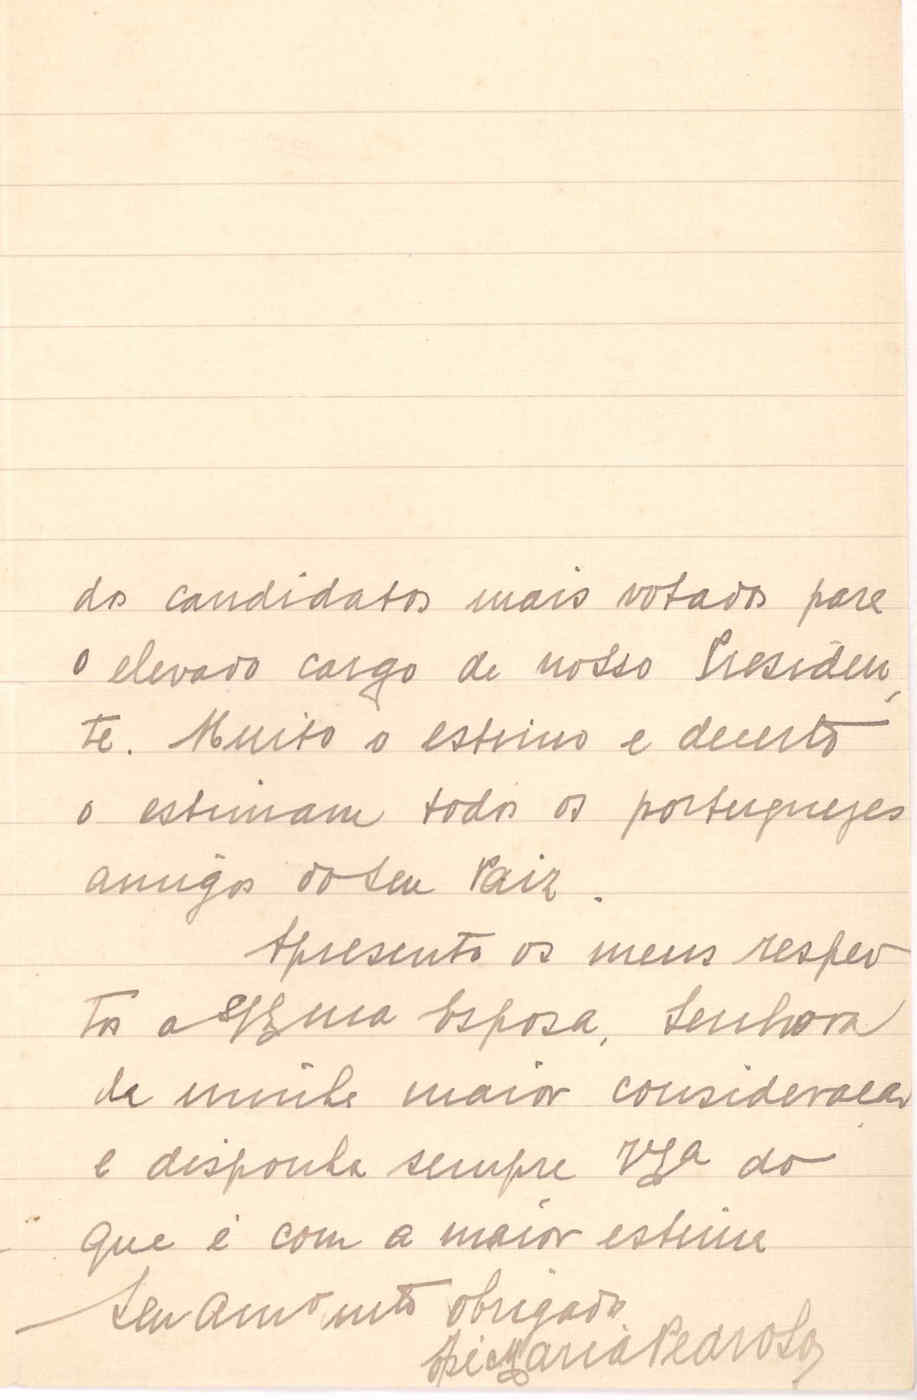 dos candidatos mais votados para
o elevado cargo de nosso Presiden,
te. Muito o estimo e decerto
o estimam todos os portuguezes
amigos do seu Paiz.
Apresento os meus respei
tos a Exma Esposa, Senhora
da minha maior consideração
e disponha sempre VExa do
que é com a maior estima
Seu amo mto obrigado
José Maria Pedroso